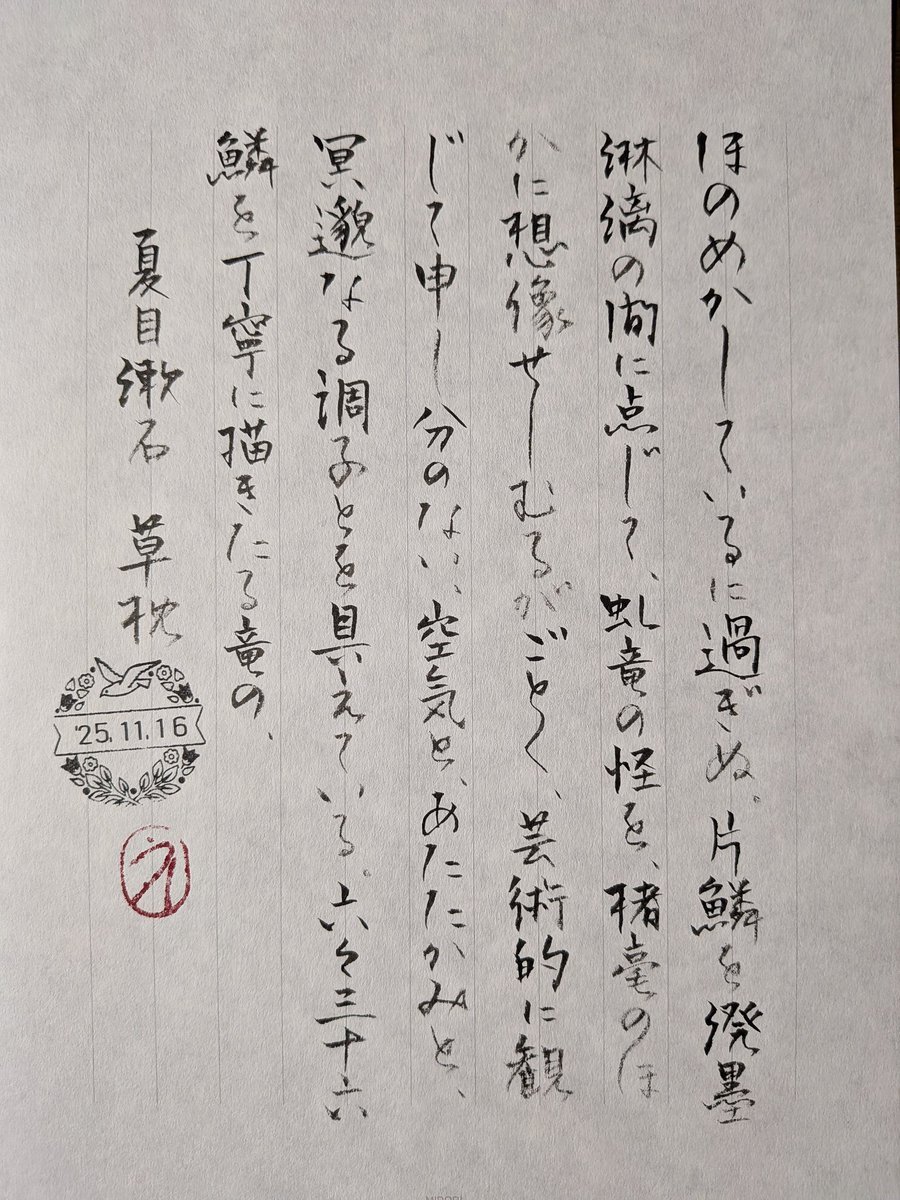 ほのめかしているに過ぎぬ。片鱗を溌墨
淋漓の間に点じて、虬竜の怪を、楮毫のほ
かに想像せしむるがごとく、芸術的に観
じて申し分のない、空気と、あたたかみと、
冥邈なる調子とを具えている。六々三十六
鱗を丁寧に描きたる竜の、
夏目漱石 草枕
'25.11.16
MIDORI